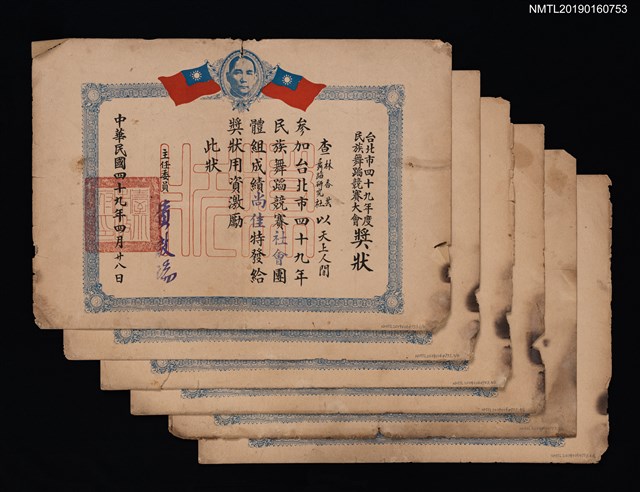 NMTL20190160753
台北市四十九年度
民族舞蹈競賽大會
獎狀
查林香芸
舞蹈研究社
以天上人間
參加台北市四十九年
民族舞蹈競賽社會團
體組成績尚佳特發給
獎狀用資激勵
此狀
主任委員
中華民國四十九年四月廿八日